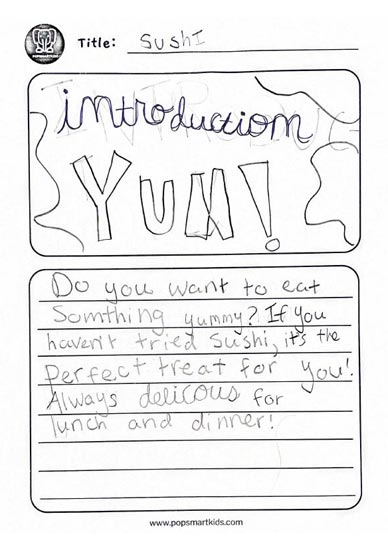 POPSMARTKIDS
Title: SushI
introduction
YUM!
Do you want to eat
Somthing yummy? If you
haven't tried sushi, it's the
perfect treat for you!
Always delicous for
lunch and dinner!
www.popsmartkids.com